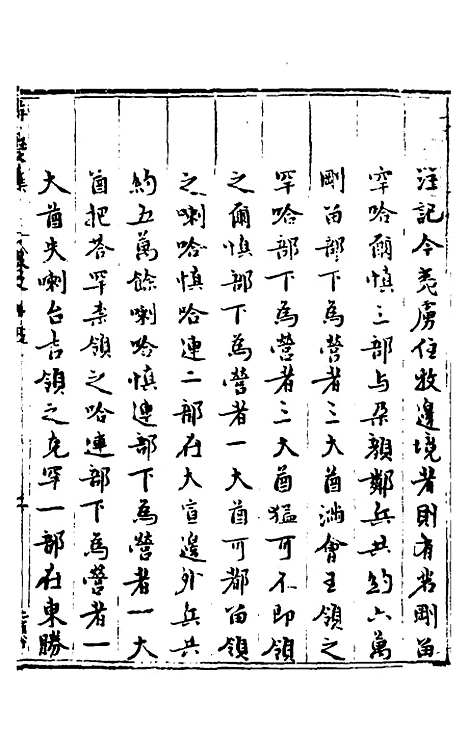 注記今羗虜住牧邊境者則有岩剛笛
罕哈爾慎三部与朶顏鄰兵共約六萬
剛笛部下為營者三大酋滿會王領之
罕哈部下為營者三大酋猛可不郎領
之爾慎部下為營者一大酋可都笛領
之喇哈慎哈連二部在大宣邊外兵共
約五萬餘喇哈慎連部下為營者一大
酋把荅罕柰領之哈連部下為營者一
大酋失喇台吉領之克罕一部在東勝